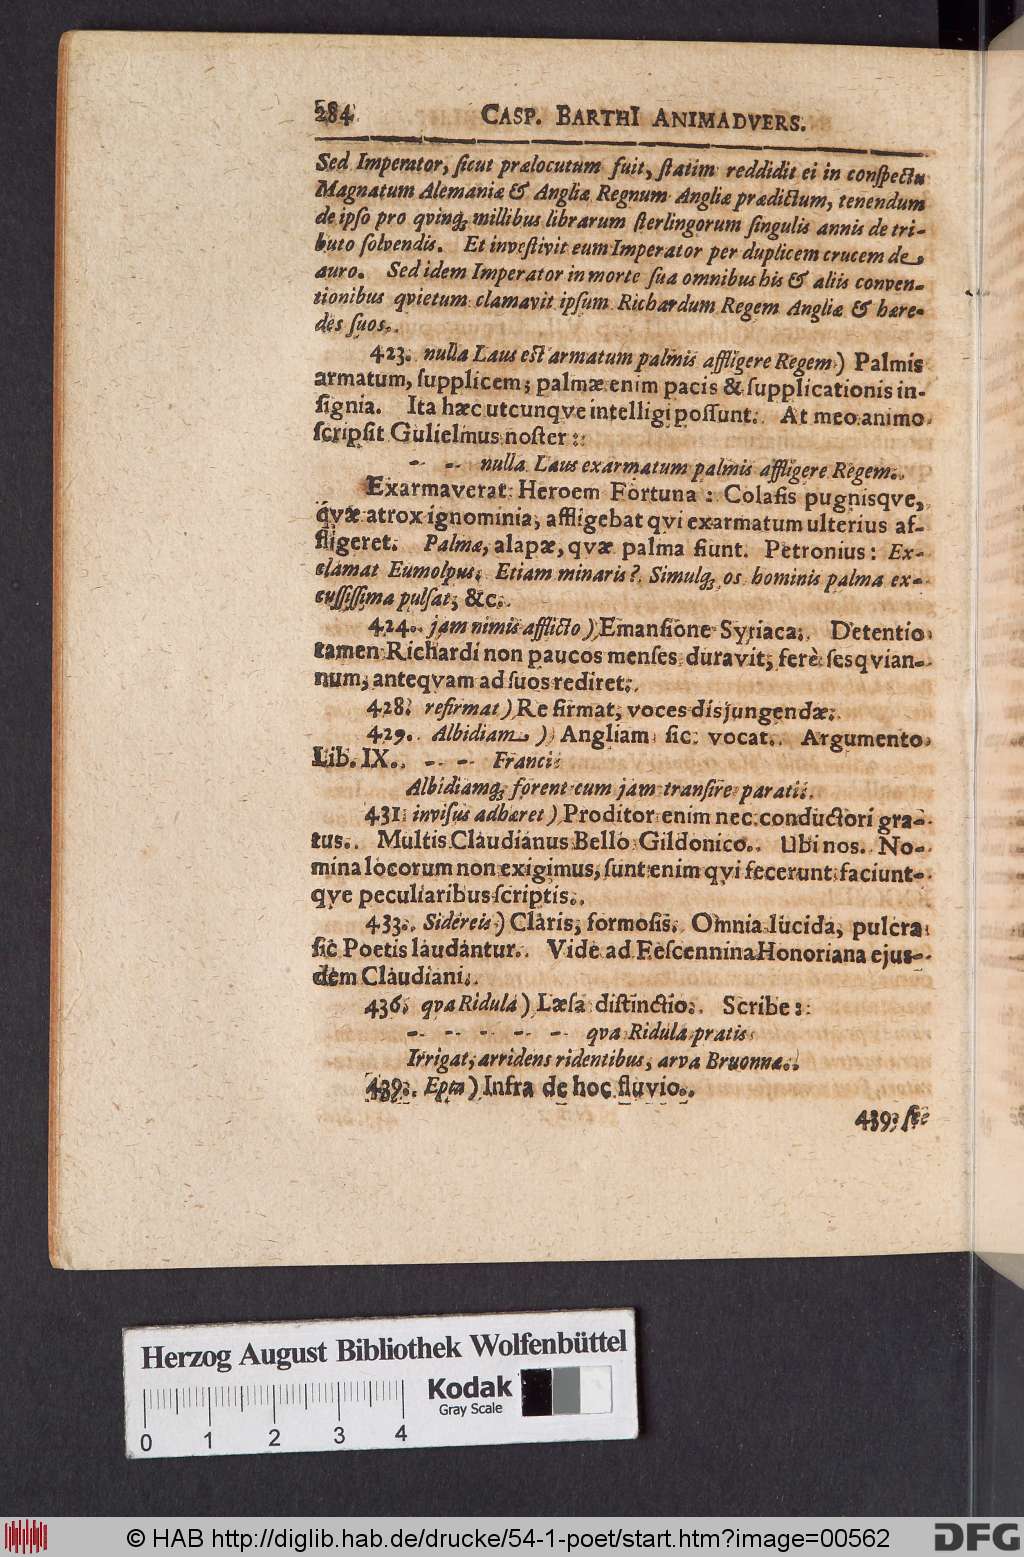 284 CASP. BARTHI ANIMADVERS.
Sed Imperator, ſicut prælocutum fuit, ſtatim reddidit ei in conſpectu
Magnatum Alemaniæ & Angliæ Regnum Angliæ prædictum, tenendum
de ipſo pro qvinq; millibus librarum ſterlingorum ſingulis annis de tri-
buto ſolvendis. Et inveſtivit eum Imperator per duplicem crucem de
auro. Sed idem Imperator in morte ſua omnibus his & aliis conven-
tionibus qvietum clamavit ipſum Richardum Regem Angliæ & hære-
des ſuos.
423. nulla Laus eſt armatum palmis affligere Regem) Palmis
armatum, ſupplicem; palmæ enim pacis & ſupplicationis in-
ſignia. Ita hæc utcunqve intelligi poſſunt. At meo animo
ſcripſit Gulielmus noſter:
-- -- nulla Laus exarmatum palmis affligere Regem.
Exarmaverat Heroem Fortuna: Colafis pugnisqve,
qvæ atrox ignominia, affligebat qvi exarmatum ulterius af-
fligeret. Palmæ, alapæ, qvæ palma fiunt. Petronius: Ex-
clamat Eumolpus; Etiam minaris? Simulq; os hominis palma ex-
cuſſiſſima pulſat, &c.
424. jam nimis afflicto) Emanſione Syriaca. Detentio
tamen Richardi non paucos menſes duravit, ferè ſesqvian-
num, anteqvam ad ſuos rediret.
428. refirmat) Re firmat, voces disjungendæ.
429. Albidiam) Angliam ſic vocat. Argumento
Lib. IX. -- -- Franci
Albidiamq; forent cum jam tranſire parati.
431. inviſus adhæret) Proditor enim nec conductori gra-
tus. Multis Claudianus Bello Gildonico. Ubi nos. No-
mina locorum non exigimus, ſunt enim qvi fecerunt faciunt-
qve peculiaribus ſcriptis.
433. Sidereis) Claris, formoſis. Omnia lucida, pulcra
ſic Poetis laudantur. Vide ad Feſcennina Honoriana ejus-
dem Claudiani.
436. qva Ridula) Læſa diſtinctio. Scribe:
-- -- -- -- -- qva Ridula pratis
Irrigat, arridens ridentibus, arva Bruonnæ.
439. Epta) Infra de hoc fluvio.
439. ſæ
Herzog August Bibliothek Wolfenbüttel
Kodak
Gray Scale
0 1 2 3 4
© HAB http://diglib.hab.de/drucke/54-1-poet/start.htm?image=00562
DFG